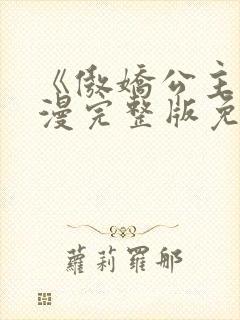 《傲嬌公主
漫完整版免
蘿莉羅那